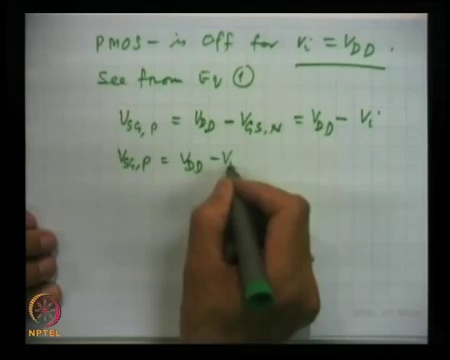 PMOS - is off for Vi = VDD.
See from Eq ①
VSG,P = VDD - VGS,N = VDD - Vi
VSG,P = VDD - V
NPTEL